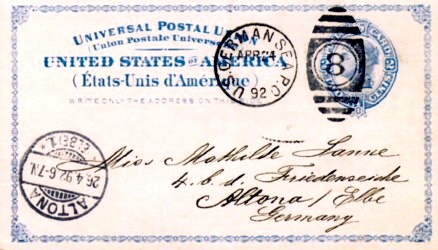 UNIVERSAL POSTAL U
(Union Postale Universe
UNITED STATES OF AMERICA
(États-Unis d'Amérique)
WRITE ONLY THE ADDRESS ON THIS
GERMANSE
APR
92
U.S.
P.O.
8
CARD
CENTS
26.4.92.6-7N.
ALTONA
Miss Mathilde Lanne
4. b. d. Friedenseiche
Altona / Elbe
Germany